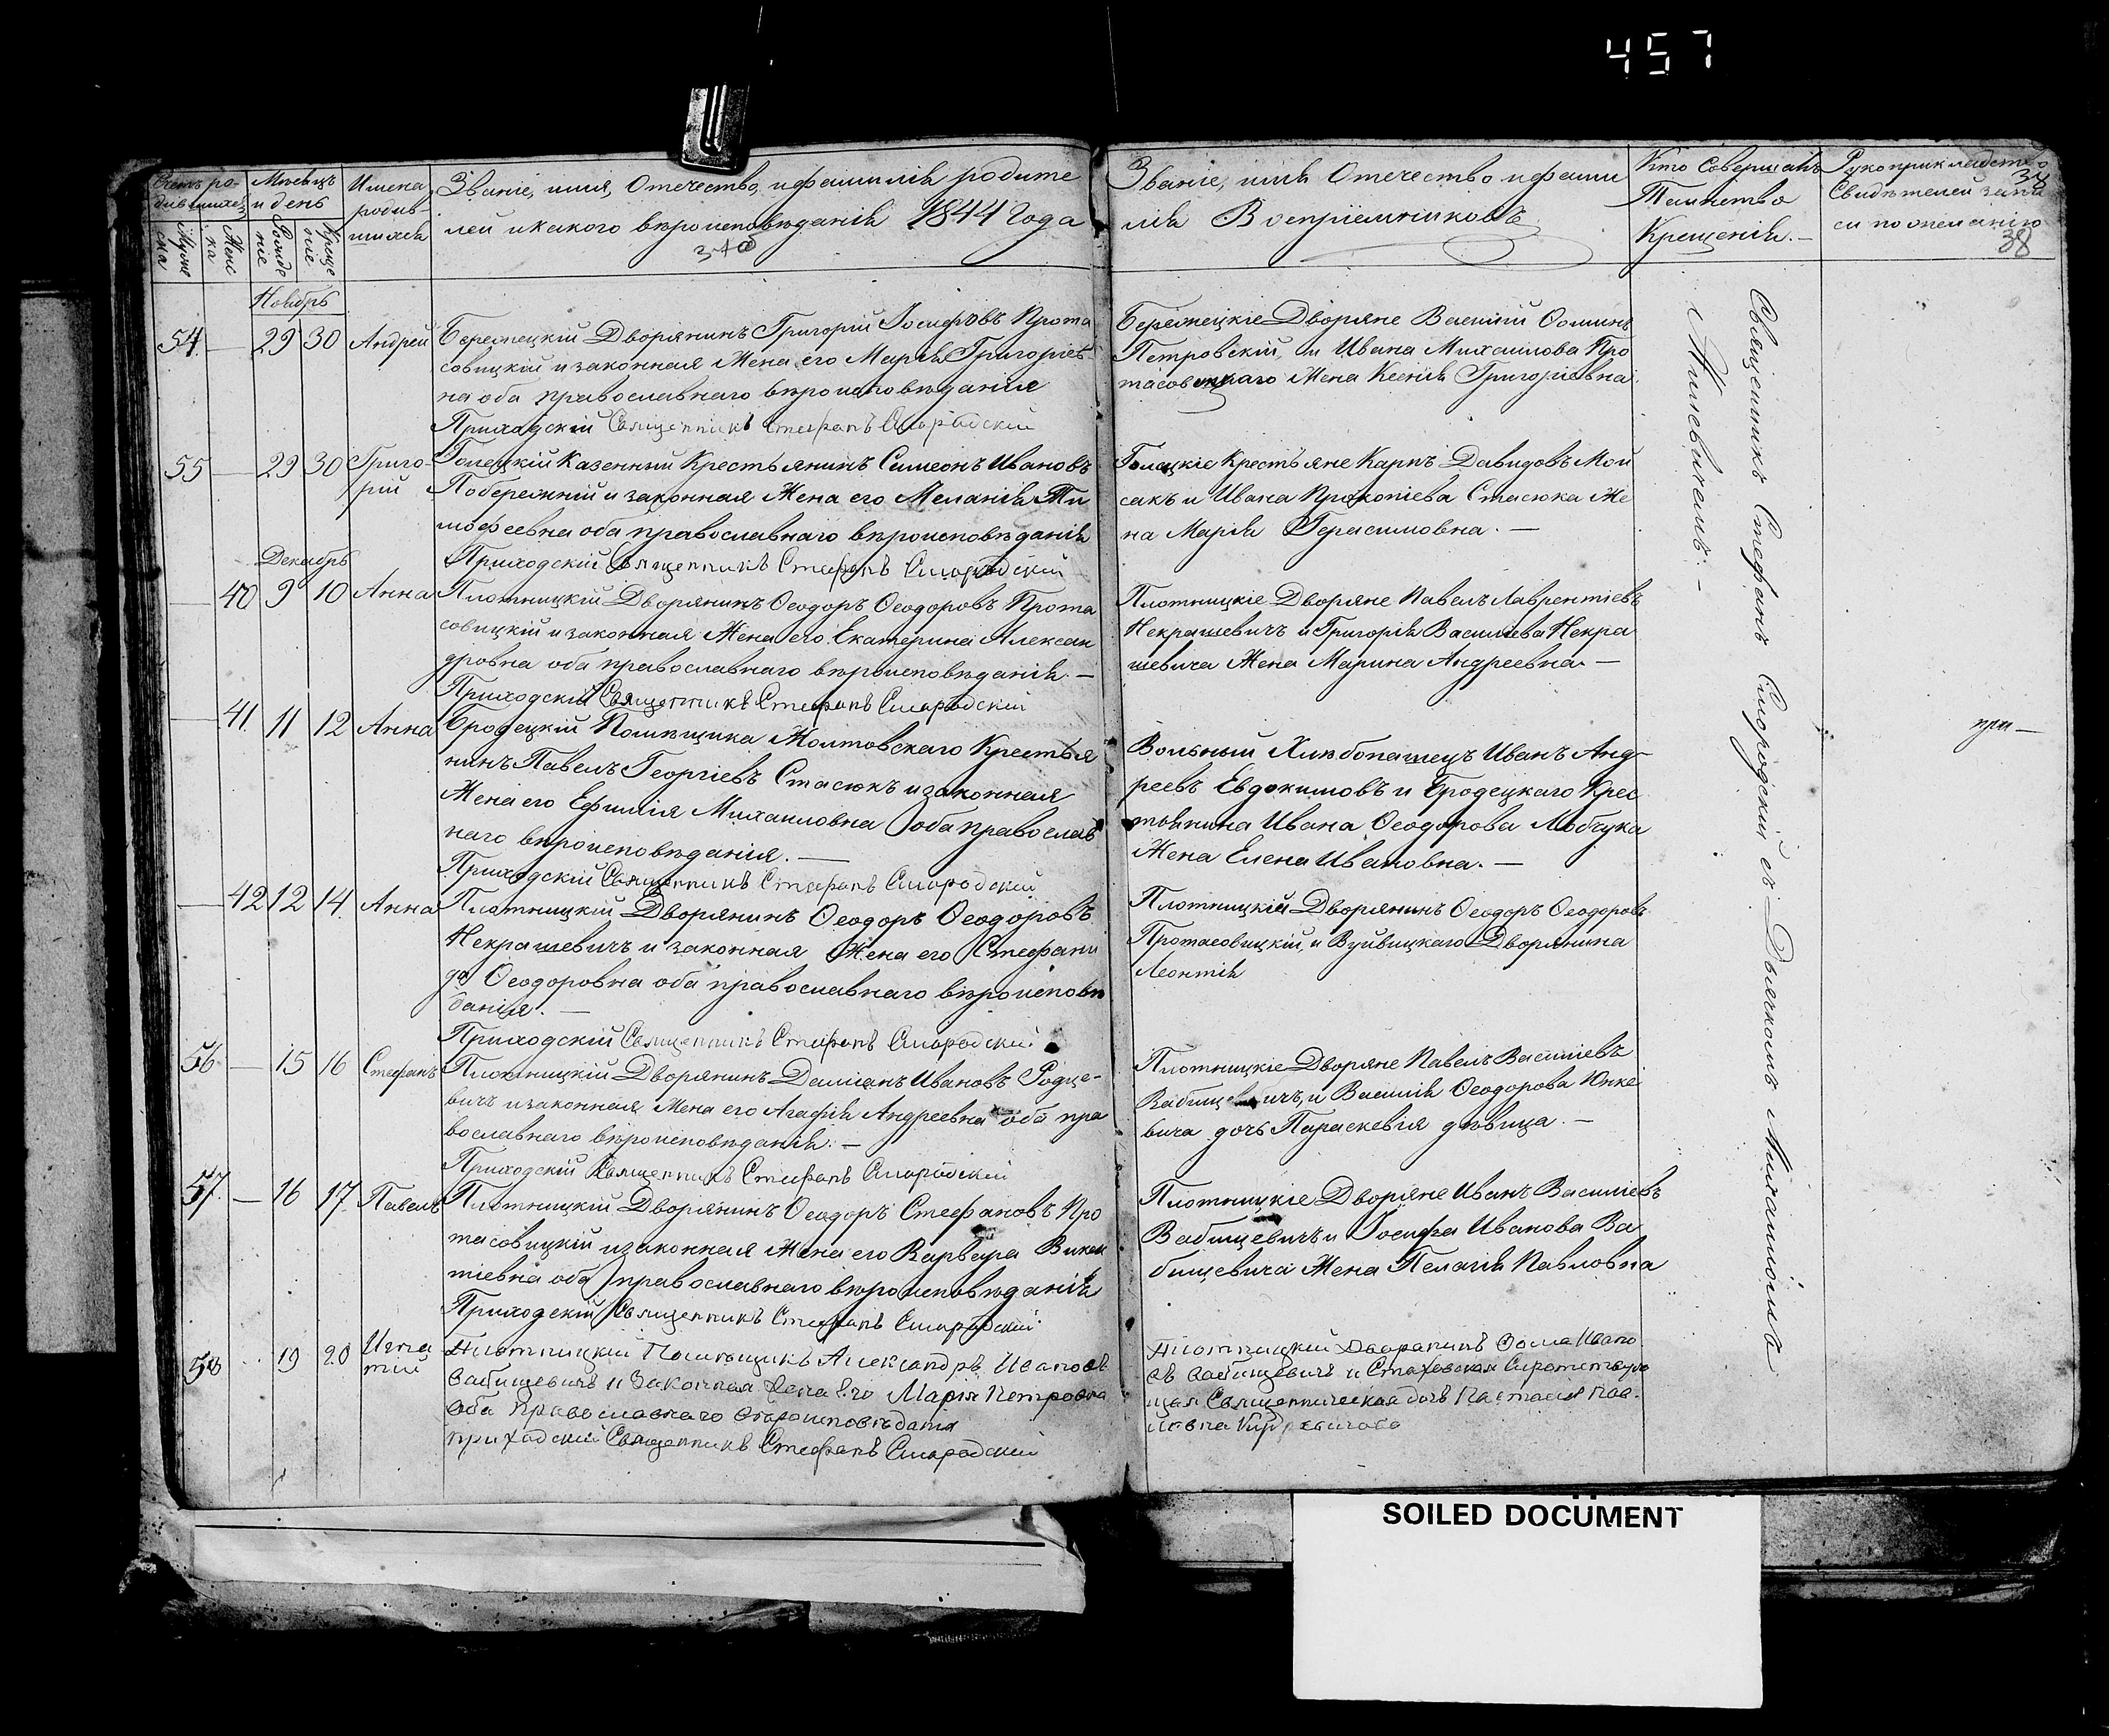 457
Счетъ ро-
дившихся
Мужеска
Женска
Мѣсяцъ
и день
Рождение
Крещение
Имена
родив-
шихся
Званіе, имя, Отечество, и фамилія родите
лей и какого вѣроисповѣданія 1844 Года
Званіе, имя Отечество и фами
лія Воспріемниковъ
Кто Совершалъ
Таинство
Крещенія.—
Рукоприкладство
Свидѣтелей запи
си по желанію
38
Ноябрь
54. — 29 30 Андрей
Бережецкій Дворянинъ Григорій Іосифовъ Прота
совицкій и законная Жена его Марія Григоріев
на оба православнаго вѣроисповѣданія
Приходскій Священникъ Стефанъ Смородскій
Бережецкіе Дворяне Василій Фоминъ
Петровскій, и Ивана Михаилова Про
тасовицкаго Жена Ксенія Григоріевна.
55 — 29 30 Григо-
рій
Голецкій Казенный Крестьянинъ Симеонъ Ивановъ
Побережній и законная Жена его Меланія Ти
мофеевна оба православнаго вѣроисповѣданія
Приходскій Священникъ Стефанъ Смородскій
Голецкіе Крестьяне Карпъ Давидовъ Мой
сакъ и Ивана Прокопіева Стасюка Же
на Марія Герасимовна. —
Декабрь
— 40 9 10 Анна
Плотницкій Дворянинъ Ѳеодоръ Ѳеодоровъ Прота
совицкій и законная Жена его Екатерина Алексан
дровна оба православнаго вѣроисповѣданія. —
Приходскій Священникъ Стефанъ Смородскій
Плотницкіе Дворяне Павелъ Лаврентіевъ
Некрашевичъ и Григорія Василіева Некра
шевича Жена Марина Андреевна. —
— 41. 11 12 Анна
Бродецкій Помѣщика Жолтовскаго Крестья
нинъ Павелъ Георгіевъ Стасюкъ и законная
Жена его Ефимія Михаиловна оба православ
наго вѣроисповѣданія. —
Приходскій Священникъ Стефанъ Смородскій
Вольный Хлѣбопашецъ Иванъ Анд-
реевъ Евдокимовъ и Бродецкаго Крес
тьянина Ивана Ѳеодорова Лобчука
Жена Елена Ивановна. —
при —
— 42 12 14. Анна
Плотницкій Дворянинъ Ѳеодоръ Ѳеодоровъ
Некрашевичъ и законная Жена его Стефани
да Ѳеодоровна оба православнаго вѣроисповѣ
данія. —
Приходскій Священникъ Стефанъ Смородскій
Плотницкій Дворянинъ Ѳеодоръ Ѳеодоровъ
Протасовицкій, и Вуйвицкаго Дворянина
Леонтія
56. — 15 16 Стефанъ
Плотницкій Дворянинъ Даміанъ Ивановъ Родце-
вичъ и законная Жена его Агафія Андреевна оба пра
вославнаго вѣроисповѣданія: —
Приходскій Священникъ Стефанъ Смородскій
Плотницкіе Дворяне Павелъ Василіевъ
Вабищевичъ, и Василія Ѳеодорова Юнке
вича дочь Параскевія дѣвица. —
57. — 16 17. Павелъ
Плотницкій Дворянинъ Ѳеодоръ Стефановъ Про
тасовицкій и законная Жена его Варвара Викен
тіевна оба православнаго вѣроисповѣданія
Приходскій Священникъ Стефанъ Смородскій
Плотницкіе Дворяне Иванъ Василіевъ
Вабищевичъ и Іосифа Иванова Ва
бищевича Жена Пелагія Павловна
58 19 20 Игна
тий
Плотницкій Помѣщикъ Александръ Ивановъ
Вабищевичъ и Законная Жена Его Марія Петровна
Оба Православнаго Вѣроисповѣданія
Приходскій Священникъ Стефанъ Смородскій
Плотницкій Дворанинъ Фома Ивано
въ Вабищевичъ и Стаховская Сиротствую
щая Священническая дочь Настасія Пав.
ловна
Священникъ Стефанъ Смородскій съ Дьячкомъ Михаиломъ